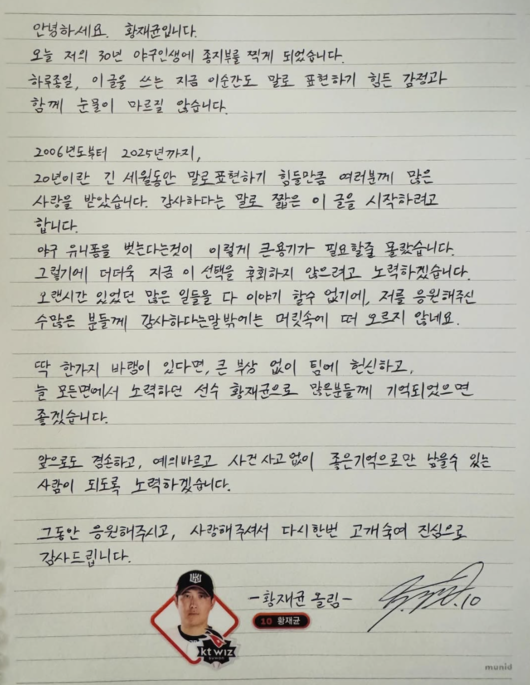 안녕하세요. 황재균입니다.
오늘 저의 30년 야구인생에 종지부를 찍게 되었습니다.
하루종일, 이 글을 쓰는 지금 이순간도 말로 표현하기 힘든 감정과
함께 눈물이 마르질 않습니다.
2006년도부터 2025년까지,
20년이란 긴 세월동안 말로표현하기 힘들만큼 여러분께 많은
사랑을 받았습니다. 감사하다는 말로 짧은 이 글을 시작하려고
합니다.
야구 유니폼을 벗는다는것이 이렇게 큰용기가 필요할줄 몰랐습니다.
그렇기에 더더욱 지금 이 선택을 후회하지 않으려고 노력하겠습니다.
오랜시간 있었던 많은 일들을 다 이야기 할수 없기에, 저를 응원해주신
수많은 분들께 감사하다는말밖에는 머릿속에 떠 오르지 않네요.
딱 한가지 바램이 있다면, 큰 부상 없이 팀에 헌신하고,
늘 모든면에서 노력하던 선수 황재균으로 많은분들께 기억되었으면
좋겠습니다.
앞으로도 겸손하고, 예의바르고 사건 사고 없이 좋은기억으로만 남을수 있는
사람이 되도록 노력하겠습니다.
그동안 응원해주시고, 사랑해주셔서 다시한번 고개숙여 진심으로
감사드립니다.
-황재균 올림-
10 황재균
kt wiz
.10
munid